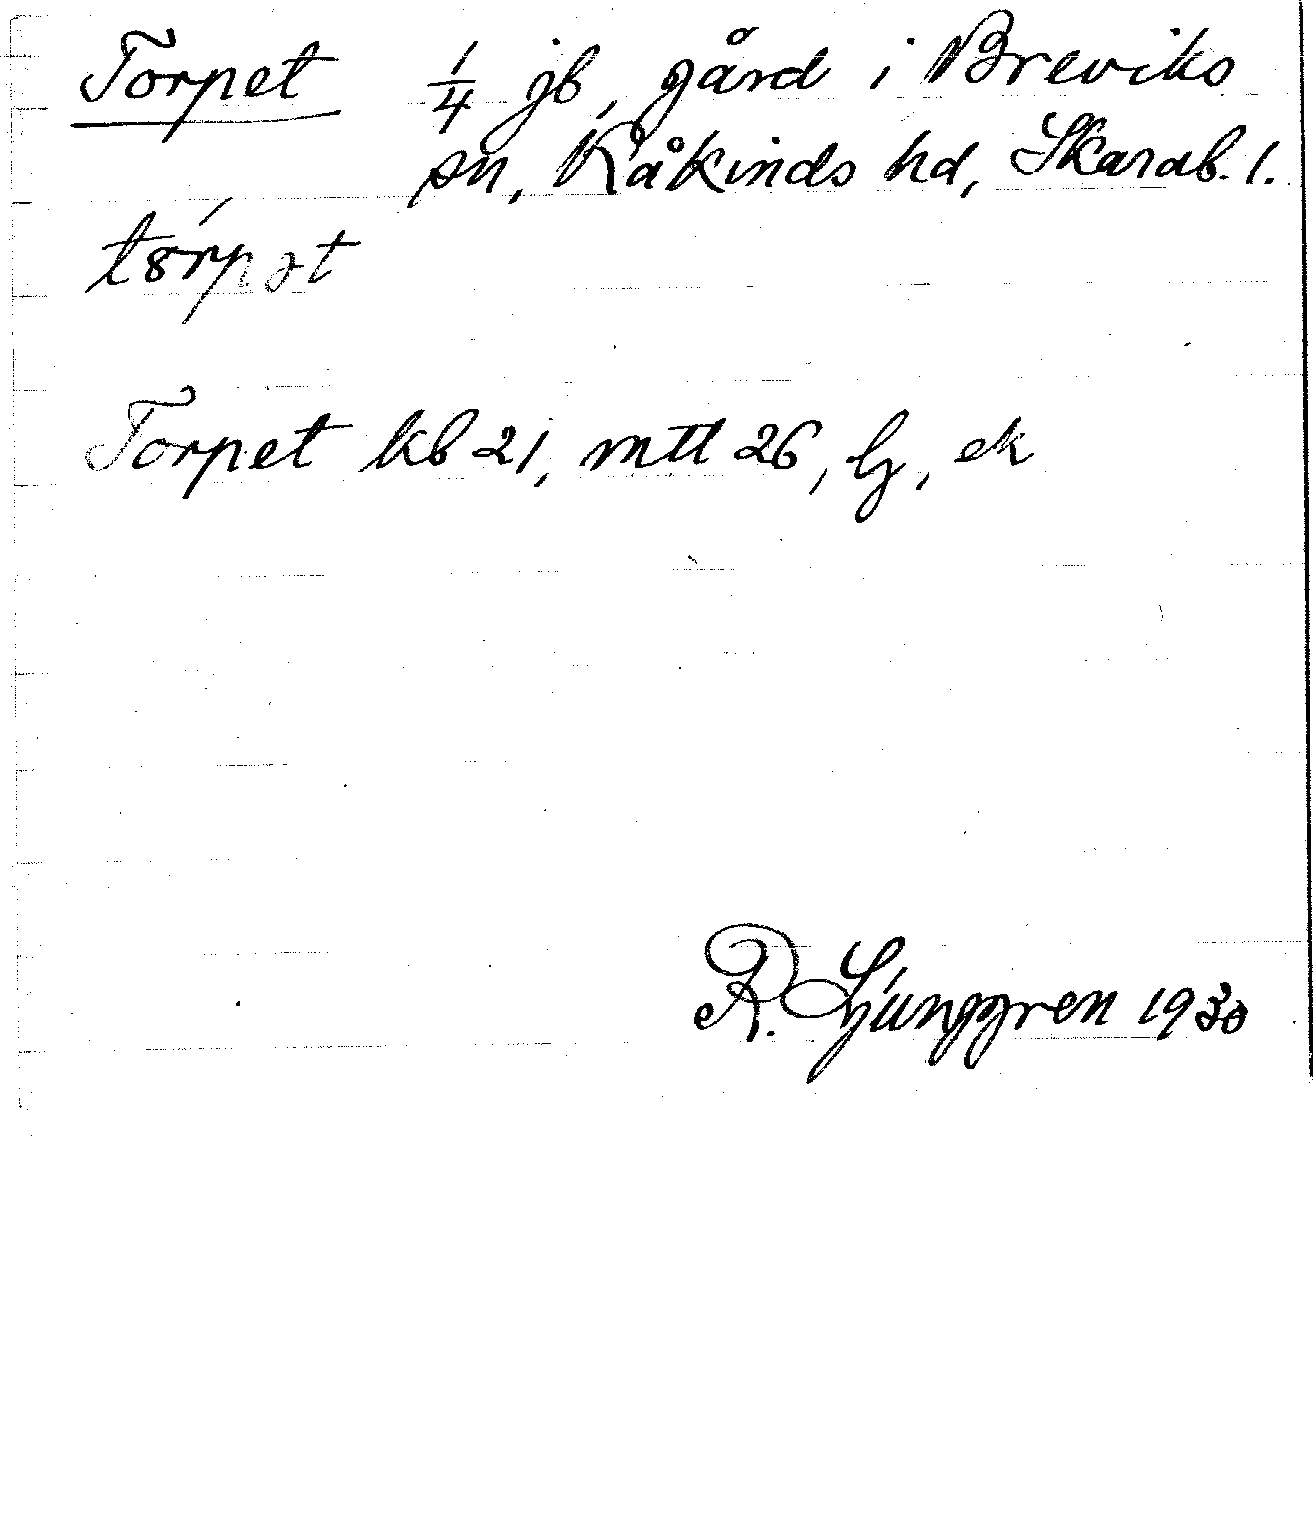 Torpet 1/4 jb, gård i Breviks
sn, Kåkinds hd, Skarab. l.
Torpet kb 21, mtt 26, lj, ek
R. Ljunggren 1930